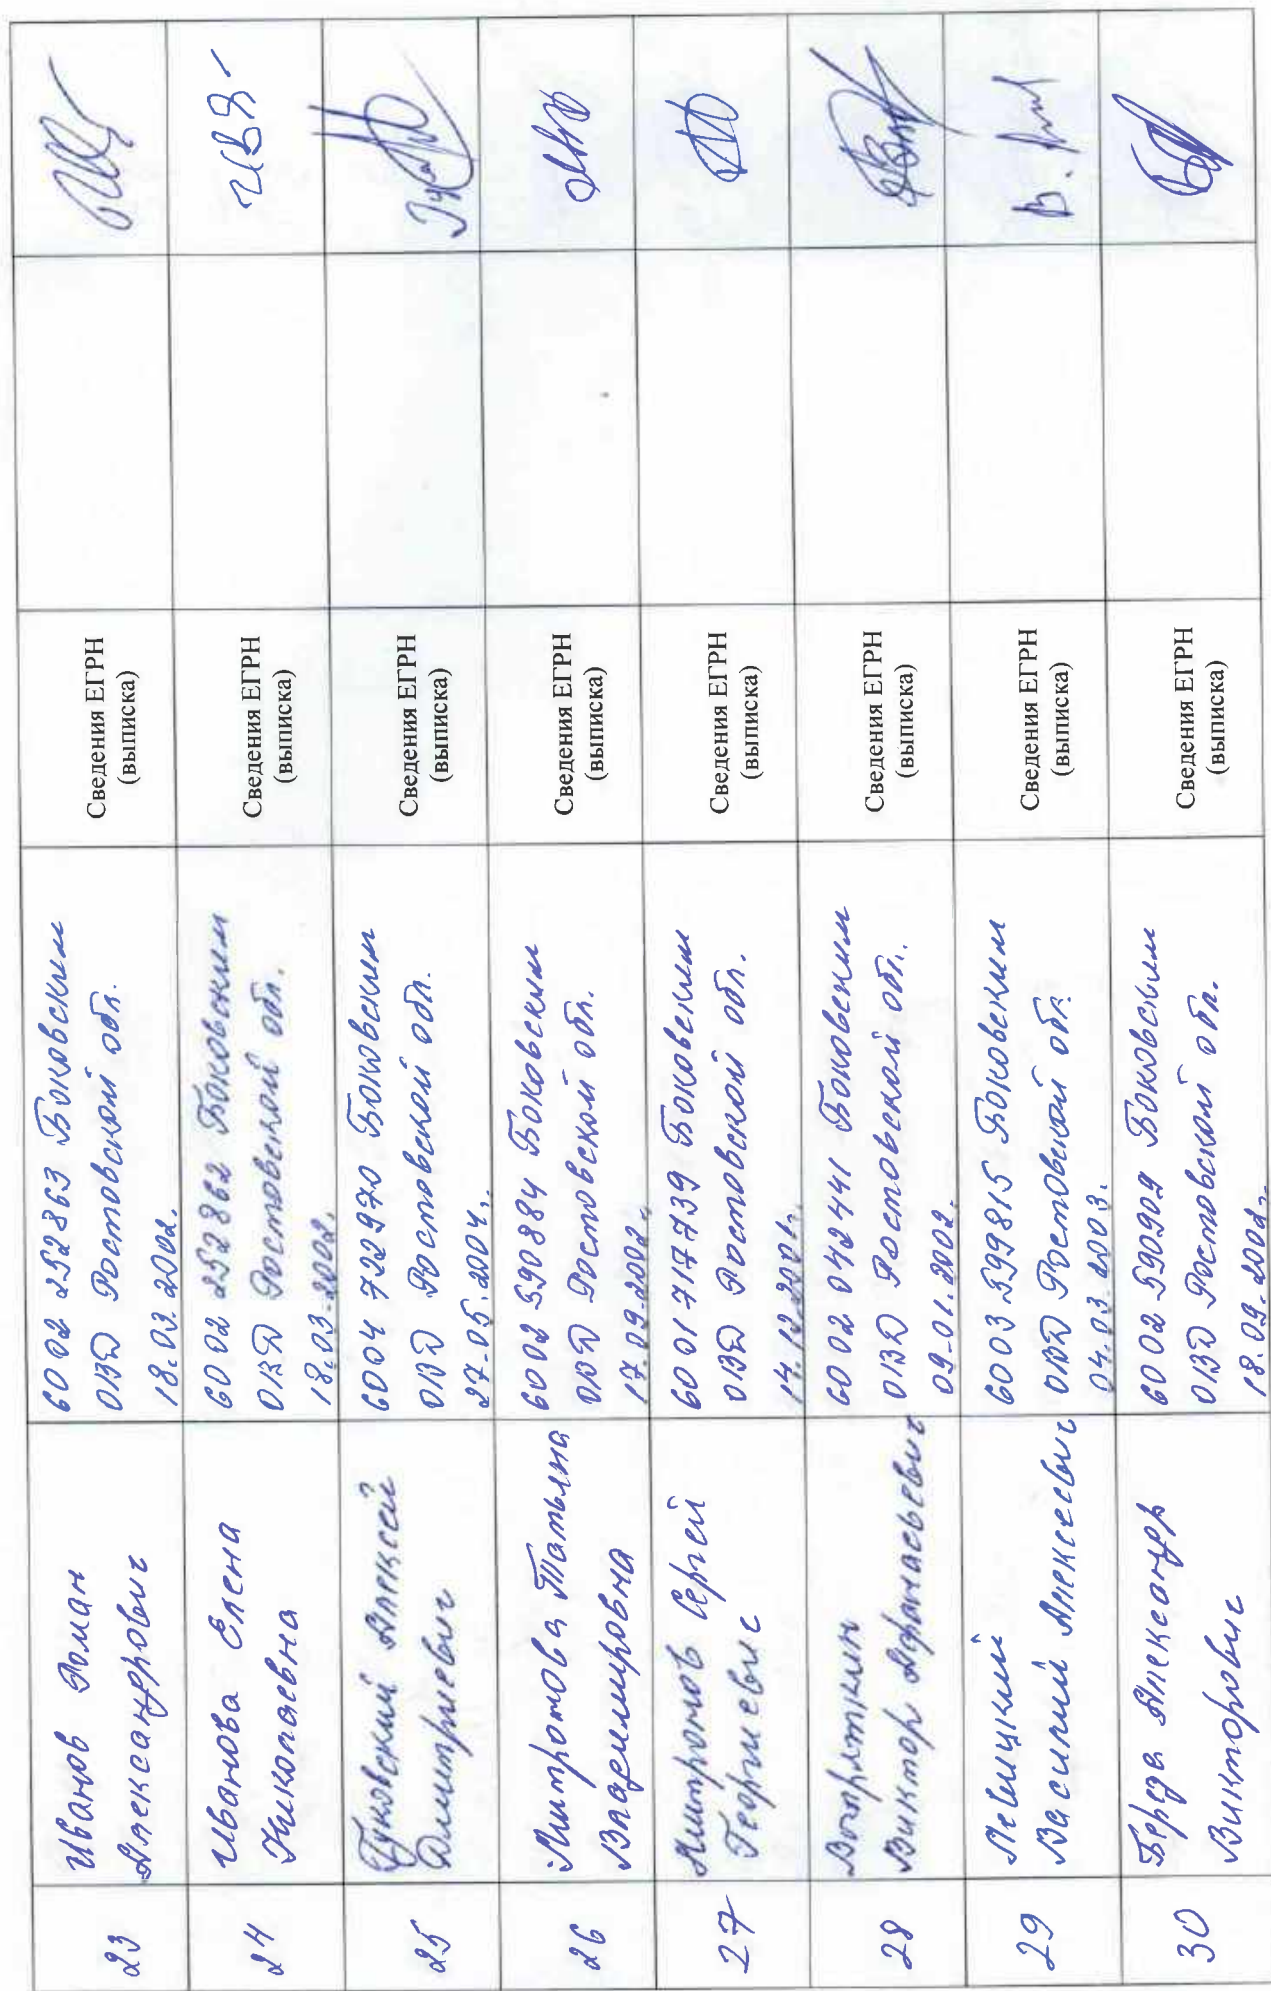 23
Иванов Роман
Александрович
60 02 252863 Боковским
ОВД Ростовской обл.
18.03.2002.
Сведения ЕГРН
(выписка)
24
Иванова Елена
Николаевна
60 02 252862 Боковским
ОВД Ростовской обл.
18.03.2002.
Сведения ЕГРН
(выписка)
ИВЯ-
25
Гуковский Алексей
Дмитриевич
60 04 722970 Боковским
ОВД Ростовской обл.
27.05.2004г.
Сведения ЕГРН
(выписка)
26
Митротова Татьяна
Владимировна
60 02 590884 Боковским
ОВД Ростовской обл.
17.09.2002г
Сведения ЕГРН
(выписка)
27
Сергей
Георгиевич
60 01 717739 Боковским
ОВД Ростовской обл.
14.12.2001г.
Сведения ЕГРН
(выписка)
28
Виктор Афанасьевич
60 02 042441 Боковским
ОВД Ростовской обл.
09.01.2002.
Сведения ЕГРН
(выписка)
29
Левицкий
Василий Алексеевич
60 03 599815 Боковским
ОВД Ростовской обл.
04.03.2003.
Сведения ЕГРН
(выписка)
30
Берда Александр
Викторович
60 02 590909 Боковским
ОВД Ростовской обл.
18.09.2002г.
Сведения ЕГРН
(выписка)